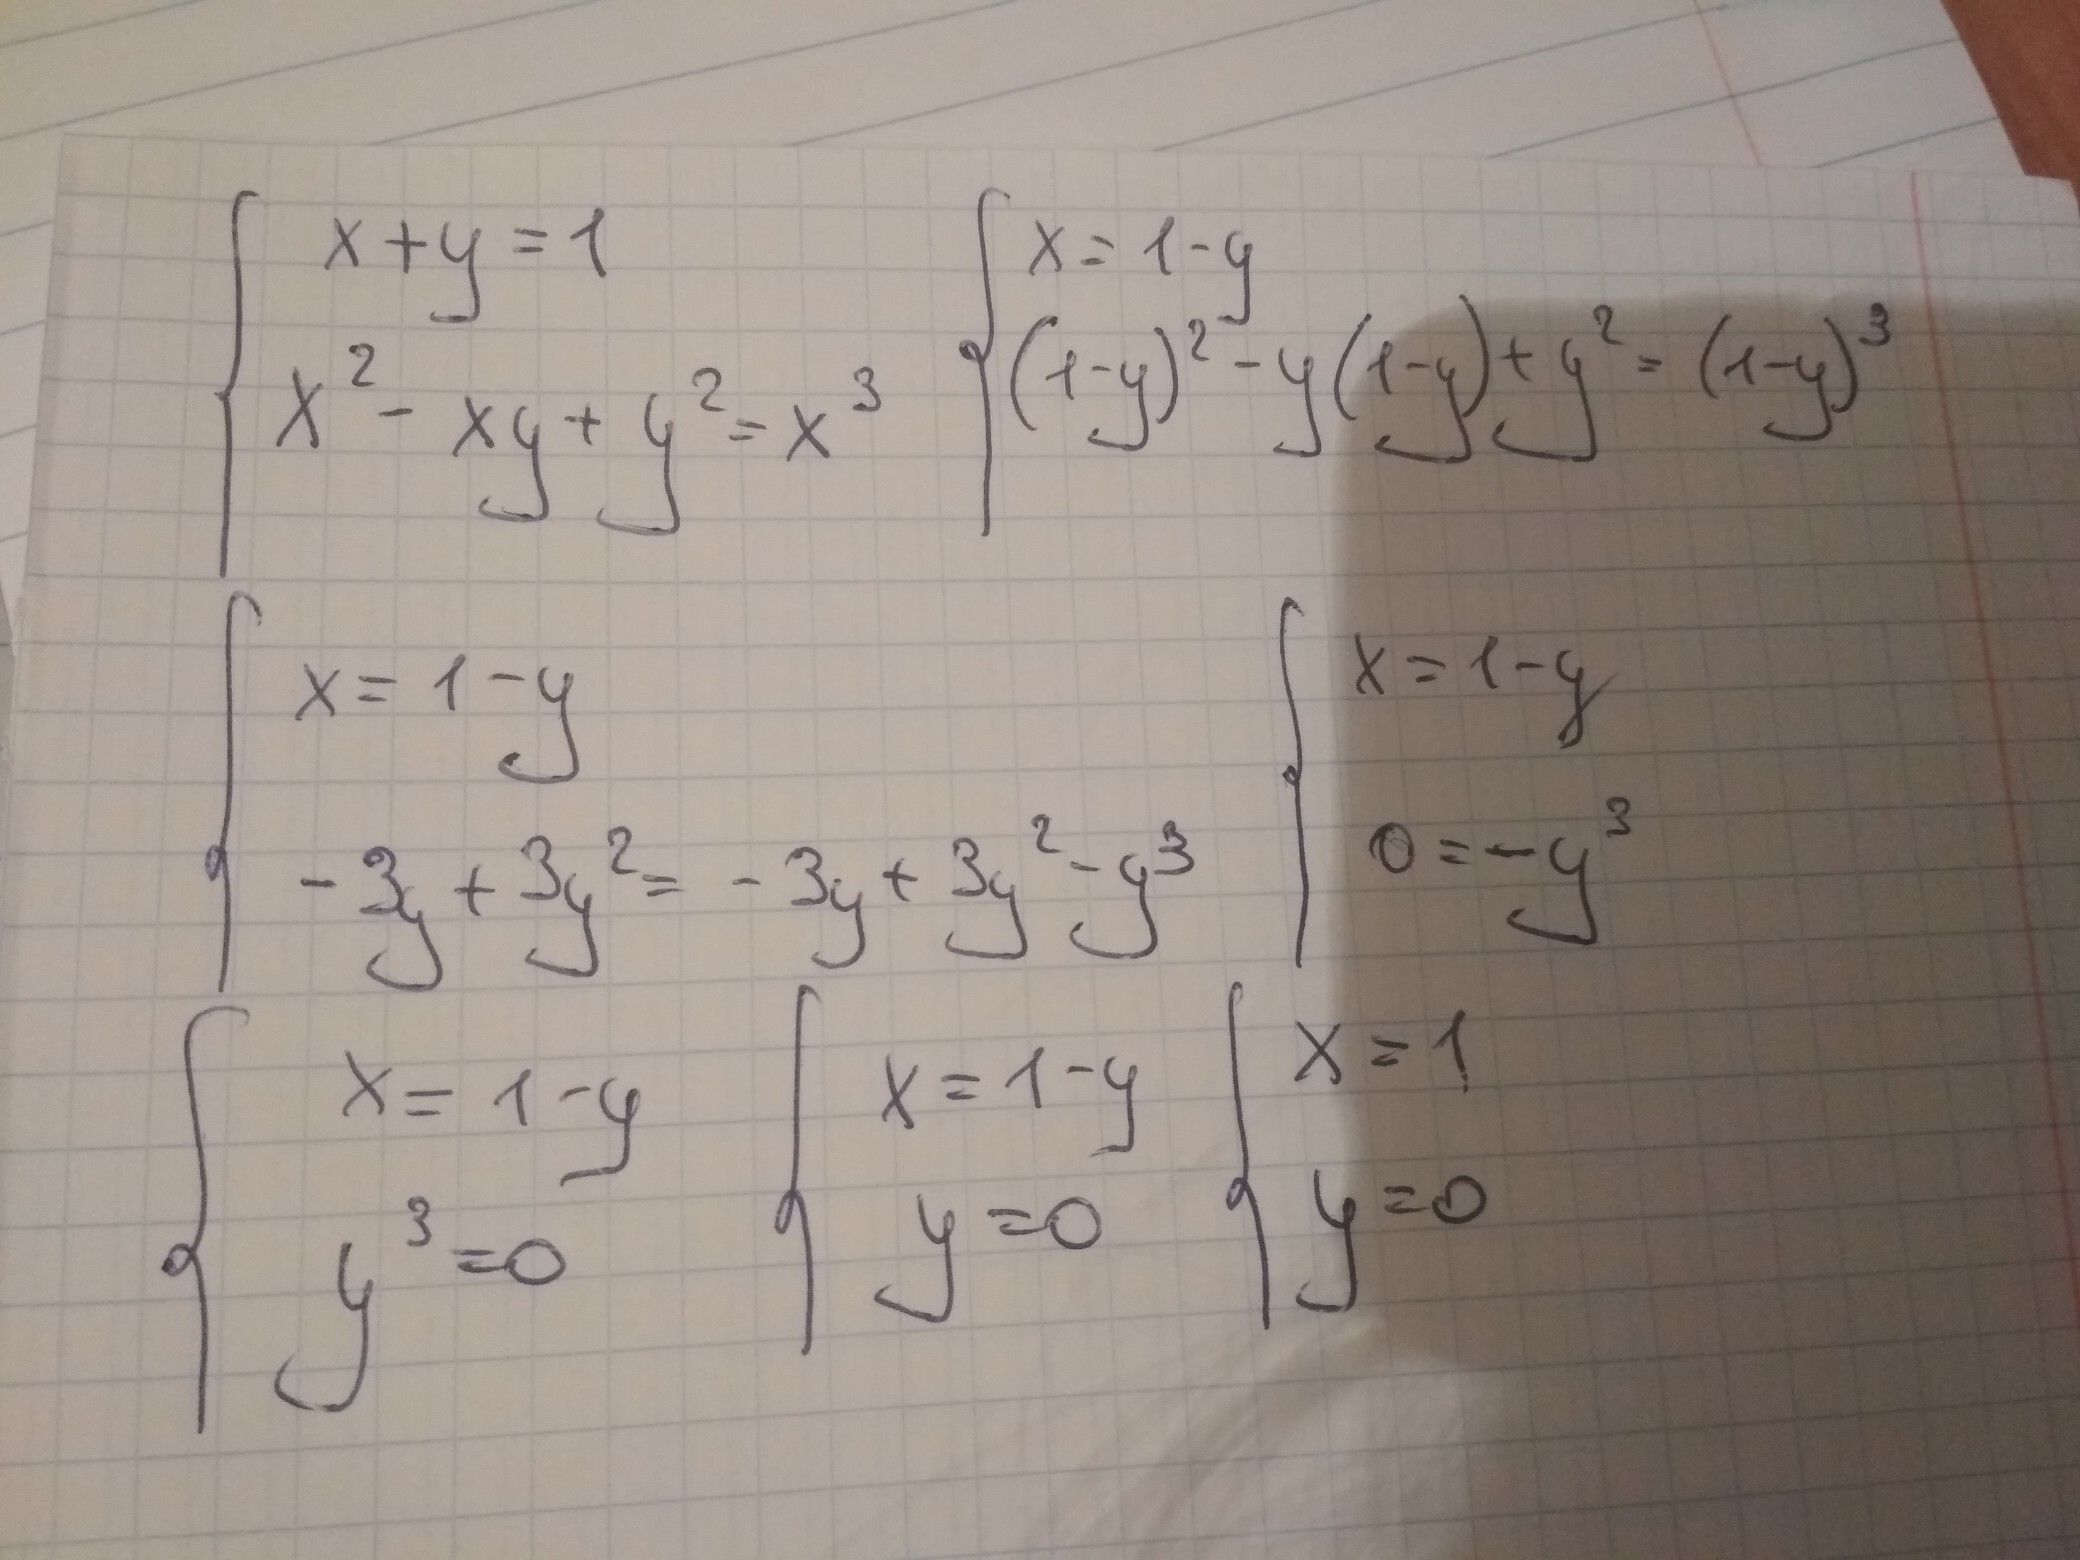 x+y=1
x²-xy+y²=x³
x=1-y
(1-y)²-y(1-y)+y²=(1-y)³
x=1-y
-3y+3y²=-3y+3y²-y³
x=1-y
0=-y³
x=1-y
y³=0
x=1-y
y=0
x=1
y=0